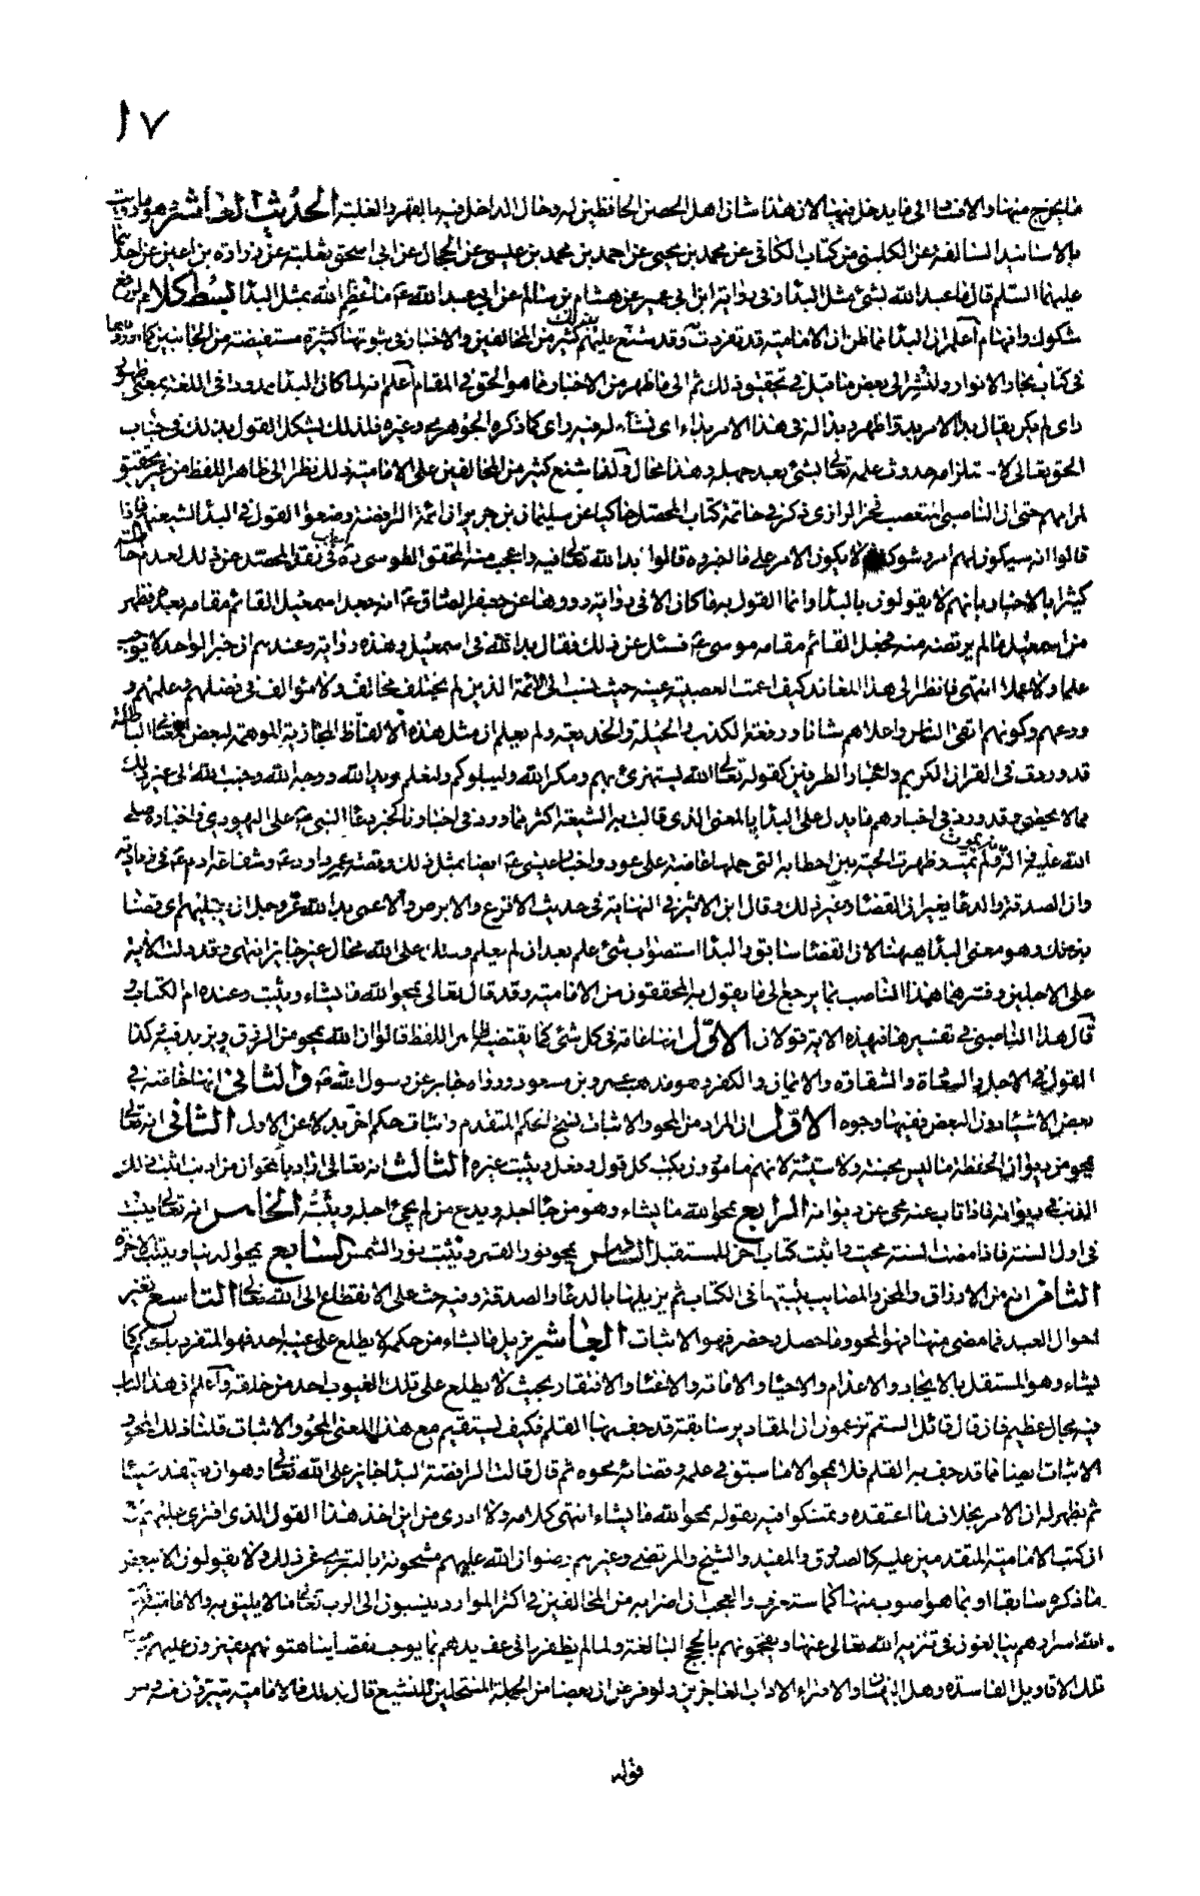 ١٧
ما يخرج منها والافتاء الى ما يدخل فيها لان هذا شان اهل الحصن الحافظين له دخال الداخل فيه بالقهر والغلبة الحديث العاشر وهو ما رويت
بالاسانيد السالفة عن الكليني من كتاب الكافي عن محمد بن يحيى عن احمد بن محمد بن عيسى عن الحجال عن ابي اسحق ثعلبة عن زرارة بن اعين عن احدهما
عليهما السلم قال ما عبد الله بشئ مثل البدا وفي رواية ابن ابي عمير عن هشام بن سالم عن ابي عبد الله عه ما عظم الله بمثل البدا بسط كلام لرفع
شكوك واوهام اعلم ان البدا مما ظن ان الامامية قد تفردت به وقد شنع عليهم بذلك كثير من المخالفين والاخبار في ثبوتها كثيرة مستفيضة من الجانبين كما اوردناها
في كتاب بحار الانوار ولنشر الى بعض ما قيل في تحقيق ذلك ثم الى ما ظهر من الاخبار مما هو الحق في المقام اعلم انه لما كان البدا ممدودا في اللغة بمعنى ظهور
راى لم يكن يقال بدا الامر بدوا ظهر وبدا له في هذا الامر بداء اى نشأ له فيه راى كما ذكره الجوهري وغيره فلذلك يشكل القول بذلك في جناب
الحق تعالى لاستلزامه حدوث علمه تعالى بشئ بعد جهله وهذا محال ولذا شنع كثير من المخالفين على الامامية في ذلك نظرا الى ظاهر اللفظ من غير تحقيق
لمرامهم حتى ان الناصبي المتعصب فخر الرازي ذكر في خاتمة كتاب المحصل حاكيا عن سليمان بن جرير ان ائمة الرافضة وضعوا القول في البدا لشيعتهم فاذا
قالوا انه سيكون لهم امر وشوكة لا يكون الامر على ما اخبروه قالوا بدا لله تعالى فيه واعجب منه انه اجاب المحقق الطوسي ره في نقد المحصل عن ذلك لعدم احاطته
كثيرا بالاخبار بانهم لا يقولون بالبدا وانما القول به ما كان الا في رواية رووها عن جعفر الصادق عه انه جعل اسمعيل القائم مقامه بعده فظهر
من اسمعيل ما لم يرتضه منه فجعل القائم مقامه موسى عه فسئل عن ذلك فقال بدا لله في اسمعيل وهذه رواية وعندهم ان خبر الواحد لا يوجب
علما ولا عملا انتهى فانظر الى هذا المعاند كيف اعمت العصبية عينه حيث نسب الى الائمة الذين لم يختلف مخالف ولا مؤالف في فضلهم وعلمهم و
ورعهم وكونهم اتقى الناس واعلاهم شانا ورفعة الكذب والحيلة والخديعة ولم يعلم ان مثل هذه الالفاظ المجازية الموهمة لبعض المعاني الباطلة
قد وردت في القران الكريم واخبار الطرفين كقوله تعالى الله يستهزئ بهم ومكر الله وليبلوكم ولنعلم ويد الله ووجه الله وجنب الله الى غير ذلك
مما لا يحصى وقد ورد في اخبارهم ما يدل على البدا بالمعنى الذي قالت به الشيعة اكثر مما ورد في اخبارنا كخبر دعا النبي عه على اليهودي واخباره صلى
الله عليه واله انه يموت ولم يمت وظهرت الحية بين احطابه التي حملها عاضة على عود واخبار عيسى عه ايضا بمثل ذلك وقصة عمر داود عه وشفاعة ادم عه في زيادته
وان الصدقة والدعا يغيران القضاء وغير ذلك وقال ابن الاثير في النهاية في حديث الاقرع والابرص والاعمى بدا لله عز وجل ان يبتليهم اى قضى
بذلك وهو معنى البدا هيهنا لان القضا سابق والبدا استصواب شئ علم بعد ان لم يعلم وذلك على الله محال غير جايز انتهى وقد دلت الآية
على الاجلين وفسرهما هذا الناصب بما يرجع الى ما يقول به المحققون من الامامية وقد قال تعالى يمحو الله ما يشاء ويثبت وعنده ام الكتاب و
قال هذا الناصبي في تفسيرها في هذه الاية قولان الاول انها عامة في كل شئ كما يقتضيه ظاهر اللفظ قالوا ان الله يمحو من الرزق ويزيد فيه وكذا
القول في الاجل والسعادة والشقاوة والايمان والكفر وهو مذهب عمرو بن مسعود ورواه جابر عن رسول الله ص والثاني انها خاصة في
بعض الاشياء دون البعض ففيها وجوه الاول ان المراد من المحو والاثبات نسخ الحكم المتقدم واثبات حكم آخر بدلا عن الاول الثاني انه تعالى
يمحو من ديوان الحفظة ما ليس بحسنة ولا سيئة لانهم مامورون بكتب كل قول وفعل ويثبت غيره الثالث انه تعالى اراد بالمحو ان من اذنب اثبت ذلك
الذنب في ديوانه فاذا تاب عنه محى عن ديوانه الرابع يمحو الله ما يشاء وهو من جا اجله ويدع من لم يجئ اجله ويثبته الخامس انه تعالى يثبت
في اول السنة فاذا مضت السنة محيت واثبت كتاب آخر للمستقبل السادس يمحو نور القمر ويثبت نور الشمس السابع يمحو الدنيا ويثبت الاخرة
الثامن انه من الارزاق والمحن والمصايب يثبتها في الكتاب ثم يزيلها بالدعا والصدقة وفيه حث على الانقطاع الى الله تعالى التاسع تغير
احوال العبد فما مضى منها فهو المحو وما حصل وحضر فهو الاثبات العاشر يزيل ما يشاء من حكمه لا يطلع على غيبه احد فهو المتفرد بالحكم كما
يشاء وهو المستقل بالايجاد والاعدام والاحياء والاماته والاغناء والافقار بحيث لا يطلع على تلك الغيوب احد من خلقه واعلم ان هذا الباب
فيه مجال عظيم فان قال قائل الستم تزعمون ان المقادير سابقة قد جف بها القلم فكيف يستقيم مع هذا المعنى المحو والاثبات قلنا ذلك المحو و
الاثبات ايضا مما قد جف به القلم فلا يمحو الا ما سبق في علمه وقضائه محوه ثم قال قالت الرافضة البدا جايز على الله تعالى وهو ان يعتقد شيئا
ثم يظهر له ان الامر بخلاف ما اعتقده وتمسكوا فيه بقوله يمحو الله ما يشاء انتهى كلامه ولا ادري من اين اخذ هذا القول الذي افترى عليهم مع
ان كتب الامامية المتقدمين عليه كالصدوق والمفيد والشيخ والمرتضى وغيرهم رضوان الله عليهم مشحونة بالتبري عن ذلك ولا يقولون الا ببعض
ما ذكره سابقا او بما هو اصوب منها كما ستعرف والعجب ان اضرابه من المخالفين في اكثر الموارد ينسبون الى الرب تعالى ما لا يليق به والامامية قدس
الله اسرارهم يبالغون في تنزيه الله تعالى عنها ويفحمونهم بالحجج البالغة ولما لم يظفروا في عقايدهم بما يوجب نقصا يباهتونهم ويفترون عليهم
تلك الاقاويل الفاسدة وهل البهتان والافتراء الا داب العاجزين ولو فرض ان بعضا من الجهلة المنتحلين للتشيع قال بذلك فالامامية يتبرؤن منه ومن
قوله